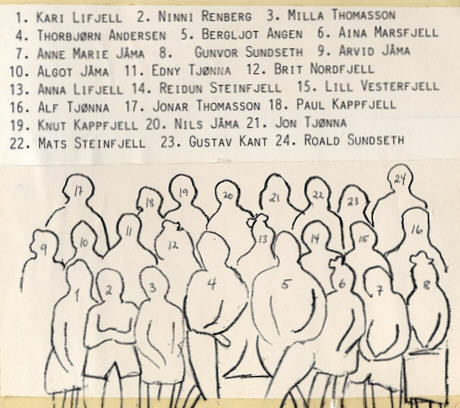 1. Kari Lifjell 2. Ninni Renberg 3. Milla Thomasson
4. Thorbjørn Andersen 5. Bergljot Angen 6. Aina Marsfjell
7. Anne Marie Jåma 8. Gunvor Sundseth 9. Arvid Jåma
10. Algot Jåma 11. Edny Tjønna 12. Brit Nordfjell
13. Anna Lifjell 14. Reidun Steinfjell 15. Lill Vesterfjell
16. Alf Tjønna 17. Jonar Thomasson 18. Paul Kappfjell
19. Knut Kappfjell 20. Nils Jåma 21. Jon Tjønna
22. Mats Steinfjell 23. Gustav Kant 24. Roald Sundseth
17 18 19 20 21 22 23 24
9 10 11 12 13 14 15 16
1 2 3 4 5 6 7 8